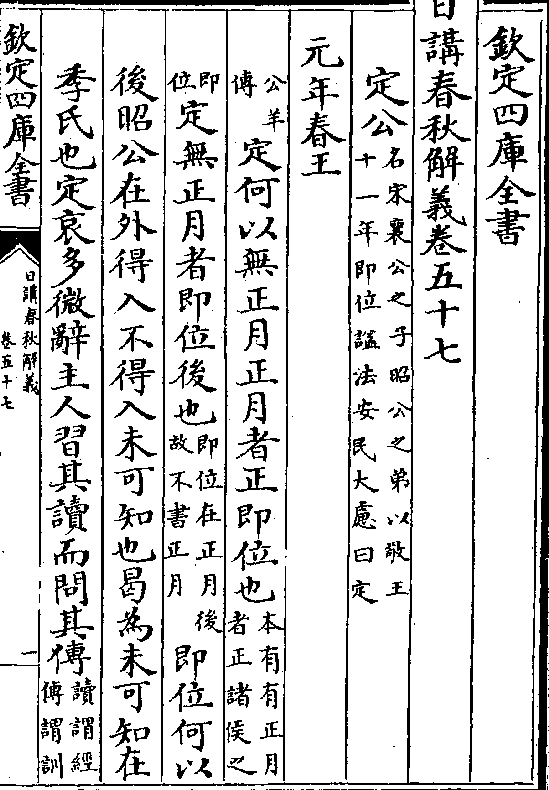 欽定四庫全書
日講春秋解義卷五十七
定公名宋襄公之子昭公之弟以敬王十一年即位諡法安民大慮曰定
元年春王
公羊傳定何以無正月正月者正即位也本有有正月者正諸侯之
即位定無正月者即位後也即位在正月後故不書正月即位何以
後昭公在外得入不得入未可知也曷為未可知在
季氏也定哀多微辭主人習其讀而問其傳讀謂經傳謂訓
欽定四庫全書
日講春秋解義
卷五十七
一